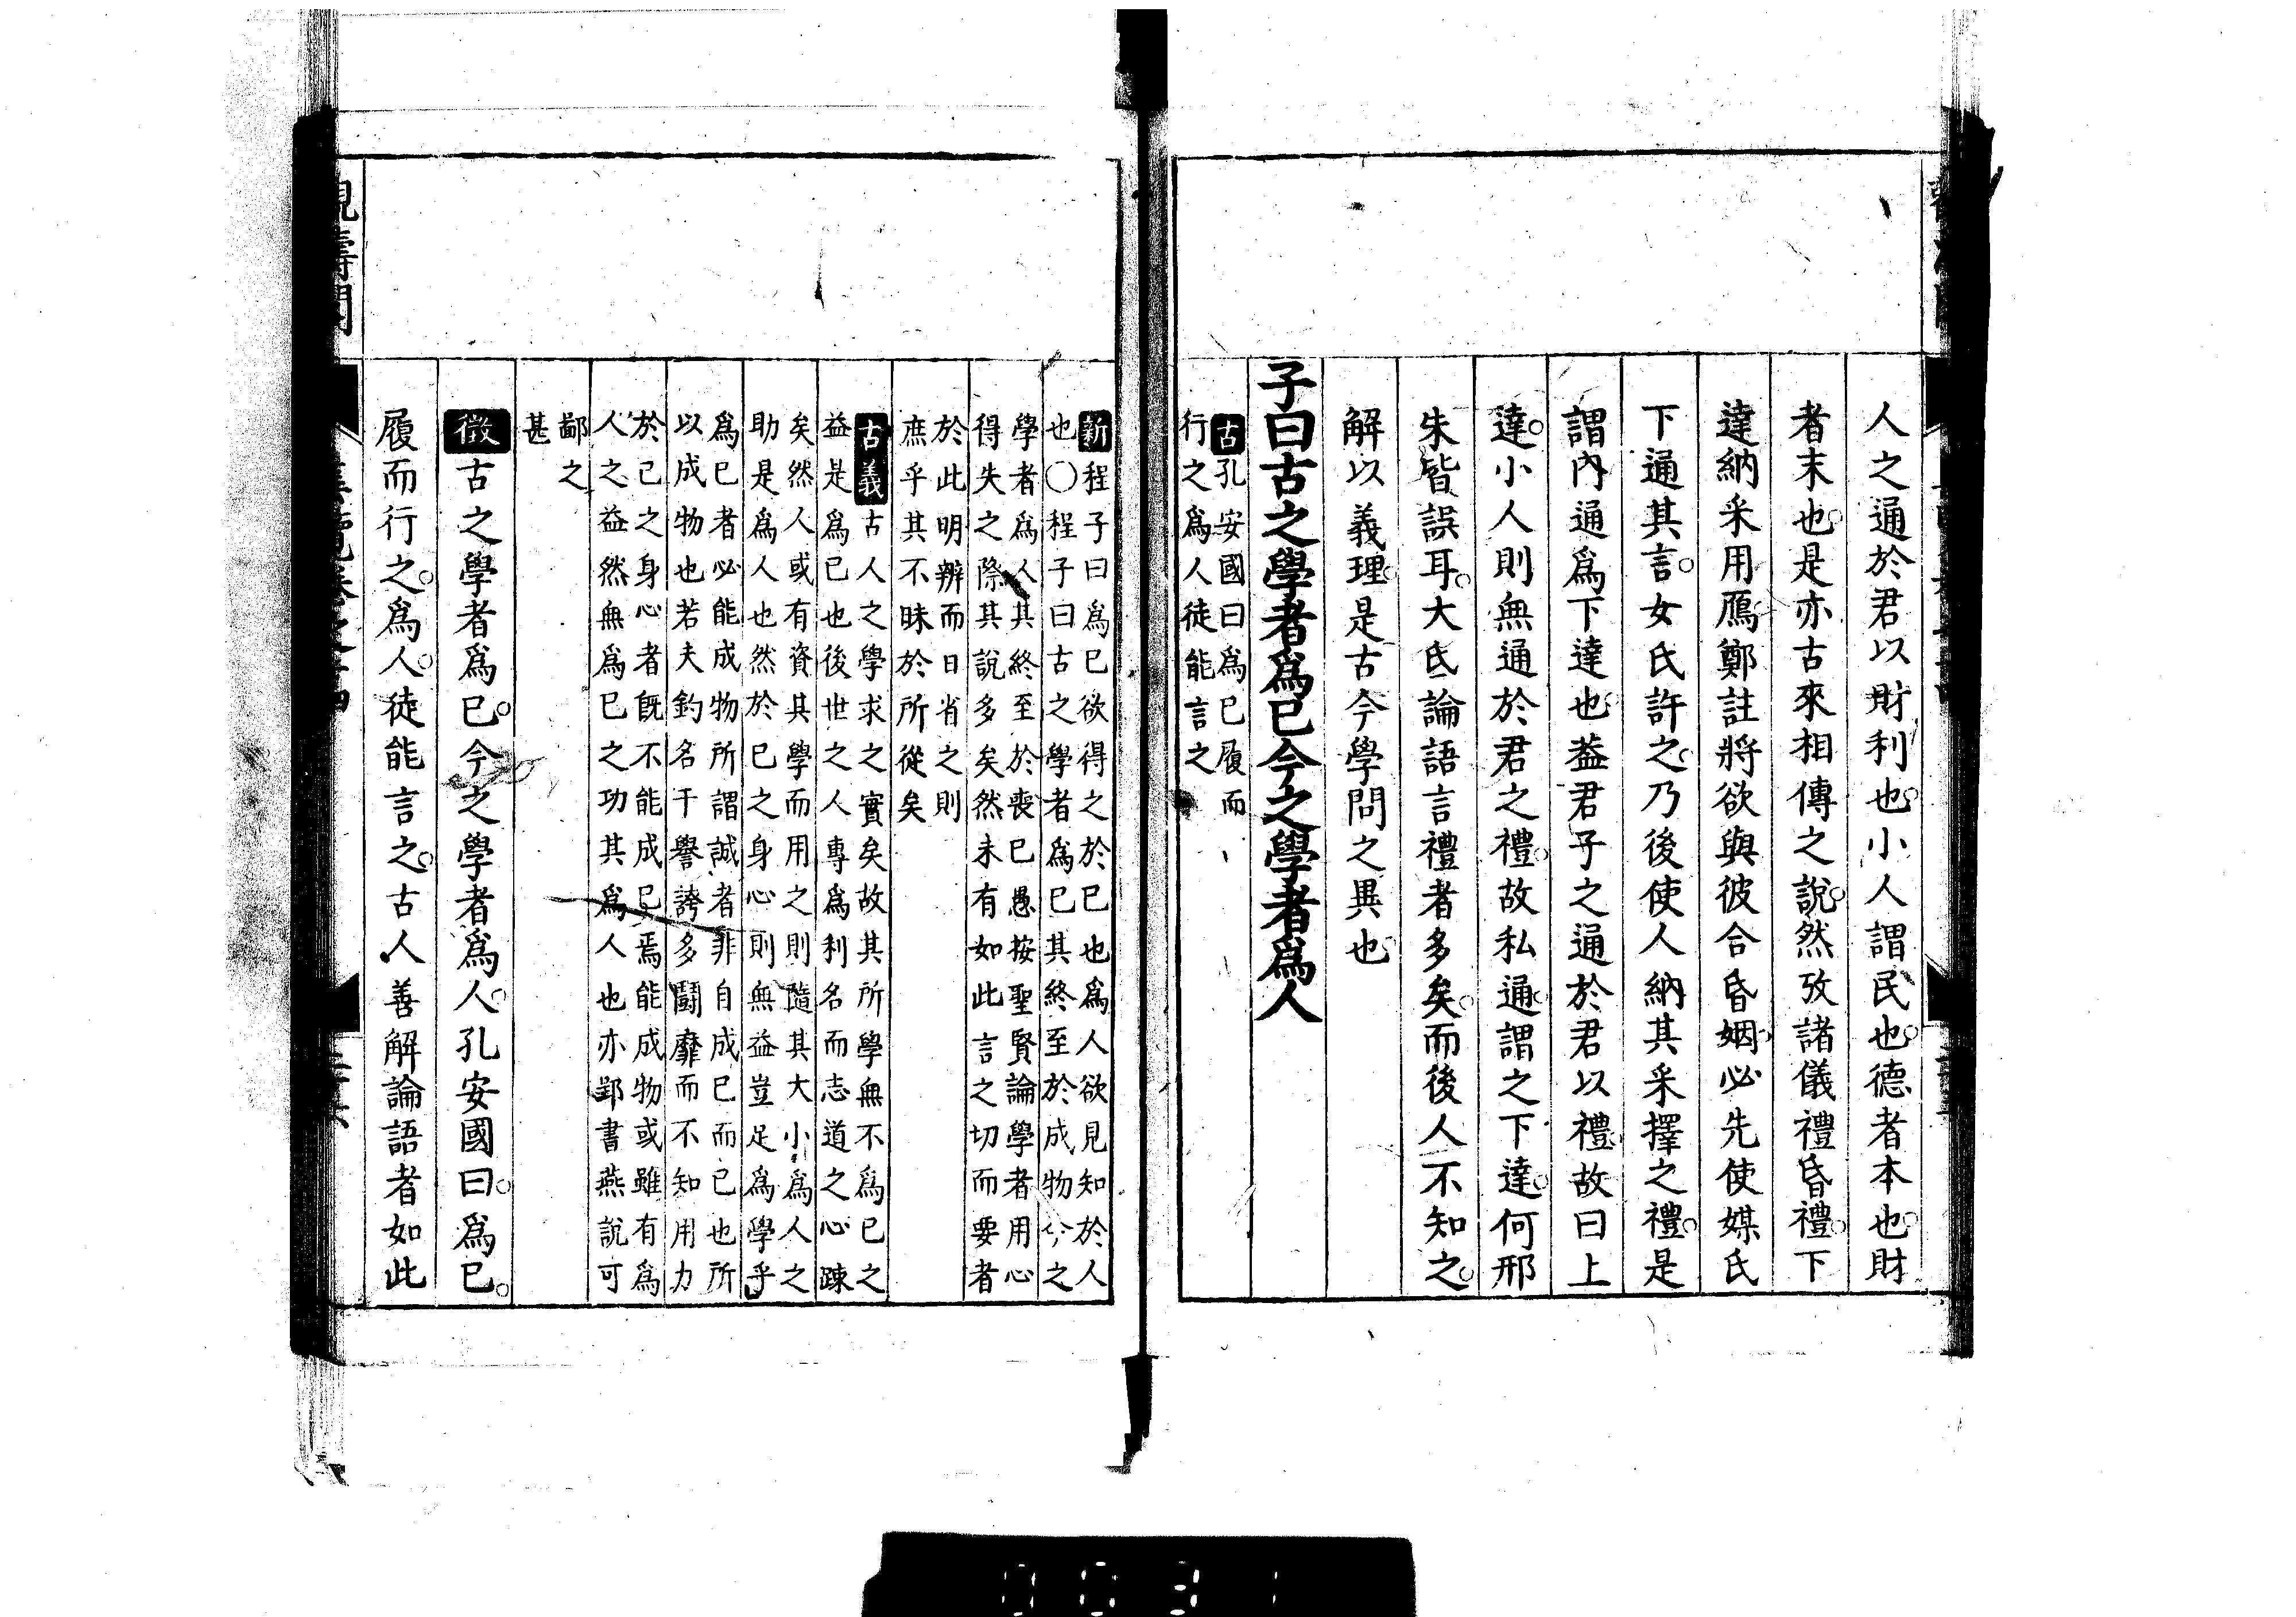 人之通於君以財利也。小人謂民也。德者本也。財
者末也。是亦古來相傳之說。然攷諸儀禮昏禮。下
達納采用鴈。鄭註將欲與彼合昏姻。必先使媒氏
下通其言。女氏許之。乃後使人納其采擇之禮。是
謂內通爲下達也。葢君子之通於君以禮。故曰上
達。小人則無通於君之禮。故私通謂之下達。何邢
朱皆誤耳。大氐論語言禮者多矣。而後人不知之。
解以義理。是古今學問之異也。
子曰古之學者爲已今之學者爲人
古孔安國曰爲已履而
行之爲人徒能言之
新程子曰爲已欲得之於已也爲人欲見知於人
也○程子曰古之學者爲已其終至於成物今之
學者爲人其終至於喪已愚按聖賢論學者用心
得失之際其說多矣然未有如此言之切而要者
於此明辨而日省之則
庶乎其不昧於所從矣
古義古人之學求之實矣故其所學無不爲已之
益是爲已也後世之人專爲利名而志道之心疎
矣然人或有資其學而用之則隨其大小爲人之
助是爲人也然於已之身心則無益豈足爲學乎
爲已者必能成物所謂誠者非自成已而已也所
以成物也若夫釣名干譽誇多鬪靡而不知用力
於已之身心者既不能成已焉能成物或雖有爲
人之益然無爲已之功其爲人也亦郢書燕說可
鄙之
甚
徵古之學者爲已。今之學者爲人。孔安國曰。爲已。
履而行之。爲人。徒能言之。古人善解論語者如此
0031